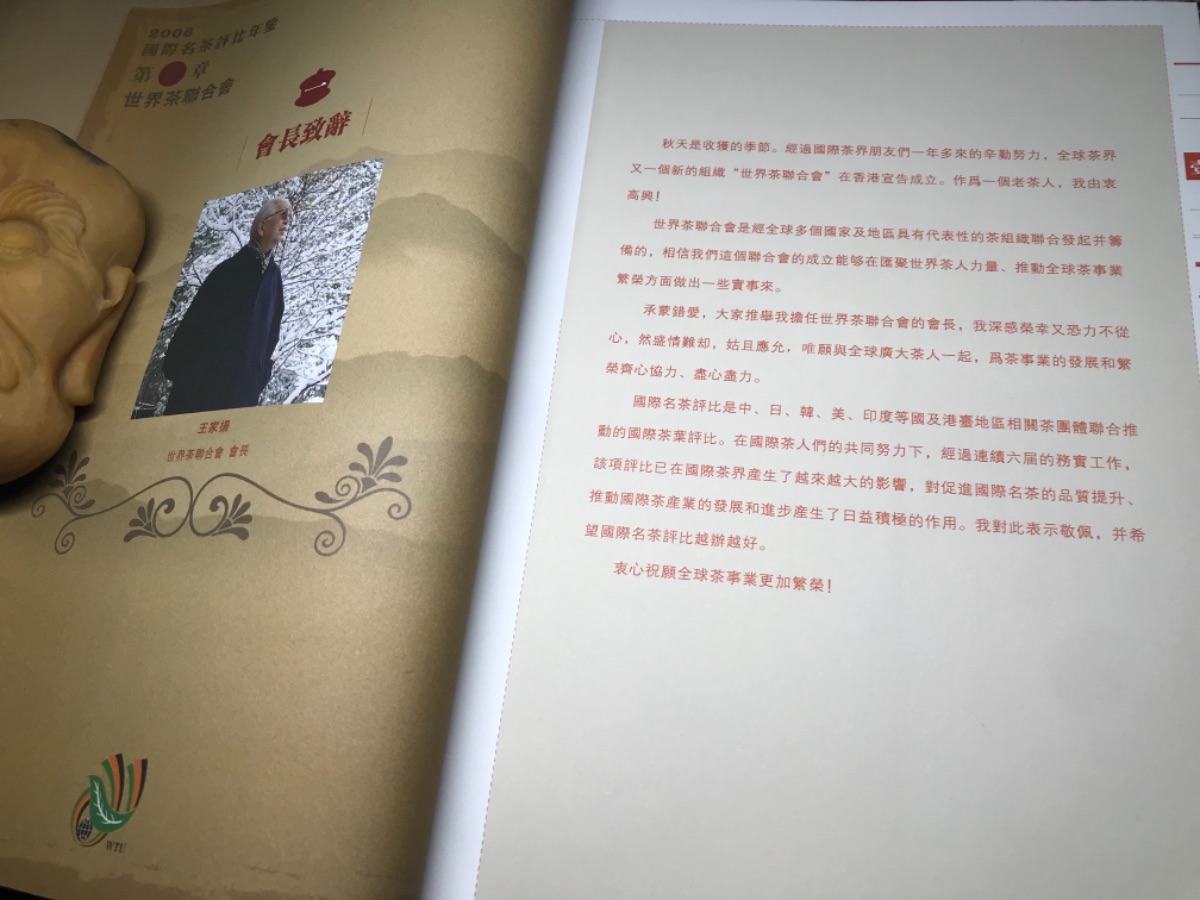 2008
國際名茶評比年鑒
第 章
世界茶聯合會
一
會長致辭
王家揚
世界茶聯合會 會長
WTU
秋天是收獲的季節。經過國際茶界朋友們一年多來的辛勤努力，全球茶界
又一個新的組織“世界茶聯合會”在香港宣告成立。作爲一個老茶人，我由衷
高興！
世界茶聯合會是經全球多個國家及地區具有代表性的茶組織聯合發起并籌
備的，相信我們這個聯合會的成立能够在匯聚世界茶人力量、推動全球茶事業
繁榮方面做出一些實事來。
承蒙錯愛，大家推舉我擔任世界茶聯合會的會長，我深感榮幸又恐力不從
心，然盛情難却，姑且應允，唯願與全球廣大茶人一起，爲茶事業的發展和繁
榮齊心協力、盡心盡力。
國際名茶評比是中、日、韓、美、印度等國及港臺地區相關茶團體聯合推
動的國際茶葉評比。在國際茶人們的共同努力下，經過連續六届的務實工作，
該項評比已在國際茶界産生了越來越大的影響，對促進國際名茶的品質提升、
推動國際茶産業的發展和進步産生了日益積極的作用。我對此表示敬佩，并希
望國際名茶評比越辦越好。
衷心祝願全球茶事業更加繁榮！